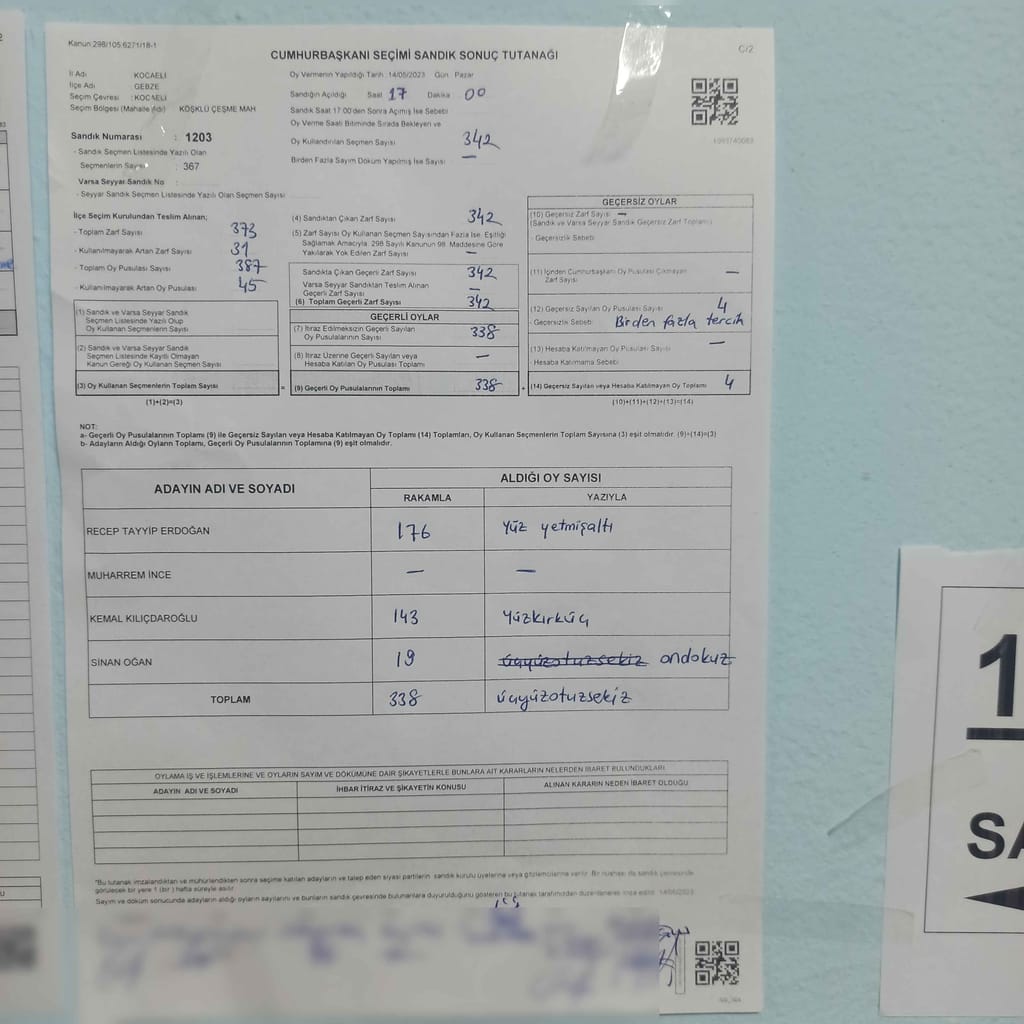 Kanun 298/105 6271/18-1
CUMHURBAŞKANI SEÇİMİ SANDIK SONUÇ TUTANAĞI
C/2
İl Adı KOCAELİ
İlçe Adı GEBZE
Seçim Çevresi : KOCAELİ
Seçim Bölgesi (Mahalle /Köy) KÖŞKLÜ ÇEŞME MAH
Oy Vermenin Yapıldığı Tarih :14/05/2023 Gün Pazar
Sandığın Açıldığı Saat 17 Dakika 00
Sandık Saat 17:00'den Sonra Açılmış İse Sebebi
Oy Verme Saati Bitiminde Sırada Bekleyen ve
Oy Kullandırılan Seçmen Sayısı 342
Birden Fazla Sayım Döküm Yapılmış İse Sayısı —
Sandık Numarası : 1203
- Sandık Seçmen Listesinde Yazılı Olan
Seçmenlerin Sayısı : 367
Varsa Seyyar Sandık No :
- Seyyar Sandık Seçmen Listesinde Yazılı Olan Seçmen Sayısı
İlçe Seçim Kurulundan Teslim Alınan;
- Toplam Zarf Sayısı 373
- Kullanılmayarak Artan Zarf Sayısı 31
- Toplam Oy Pusulası Sayısı 387
- Kullanılmayarak Artan Oy Pusulası 45
(1) Sandık ve Varsa Seyyar Sandık
Seçmen Listesinde Yazılı Olup
Oy Kullanan Seçmenlerin Sayısı
(2) Sandık ve Varsa Seyyar Sandık
Seçmen Listesinde Kayıtlı Olmayan
Kanun Gereği Oy Kullanan Seçmen Sayısı
(3) Oy Kullanan Seçmenlerin Toplam Sayısı
(1)+(2)=(3)
(4) Sandıktan Çıkan Zarf Sayısı 342
(5) Zarf Sayısı Oy Kullanan Seçmen Sayısından Fazla İse, Eşitliği
Sağlamak Amacıyla, 298 Sayılı Kanunun 98. Maddesine Göre
Yakılarak Yok Edilen Zarf Sayısı —
Sandıkta Çıkan Geçerli Zarf Sayısı 342
Varsa Seyyar Sandıktan Teslim Alınan
Geçerli Zarf Sayısı —
(6) Toplam Geçerli Zarf Sayısı 342
GEÇERLİ OYLAR
(7) İtiraz Edilmeksizin Geçerli Sayılan
Oy Pusulalarının Sayısı 338
(8) İtiraz Üzerine Geçerli Sayılan veya
Hesaba Katılan Oy Pusulası Toplamı —
= (9) Geçerli Oy Pusulalarının Toplamı 338 +
GEÇERSİZ OYLAR
(10) Geçersiz Zarf Sayısı —
(Sandık ve Varsa Seyyar Sandık Geçersiz Zarf Toplamı)
- Geçersizlik Sebebi
(11) İçinden Cumhurbaşkanı Oy Pusulası Çıkmayan
Zarf Sayısı —
(12) Geçersiz Sayılan Oy Pusulası Sayısı 4
- Geçersizlik Sebebi Birden fazla tercih
(13) Hesaba Katılmayan Oy Pusulası Sayısı —
- Hesaba Katılmama Sebebi
(14) Geçersiz Sayılan veya Hesaba Katılmayan Oy Toplamı 4
(10)+(11)+(12)+(13)=(14)
NOT:
a- Geçerli Oy Pusulalarının Toplamı (9) ile Geçersiz Sayılan veya Hesaba Katılmayan Oy Toplamı (14) Toplamları, Oy Kullanan Seçmenlerin Toplam Sayısına (3) eşit olmalıdır. (9)+(14)=(3)
b- Adayların Aldığı Oyların Toplamı, Geçerli Oy Pusulalarının Toplamına (9) eşit olmalıdır.
ADAYIN ADI VE SOYADI ALDIĞI OY SAYISI
RAKAMLA YAZIYLA
RECEP TAYYİP ERDOĞAN 176 Yüz yetmişaltı
MUHARREM İNCE — —
KEMAL KILIÇDAROĞLU 143 Yüzkırküç
SİNAN OĞAN 19 üçyüzotuzsekiz ondokuz
TOPLAM 338 üçyüzotuzsekiz
OYLAMA İŞ VE İŞLEMLERİNE VE OYLARIN SAYIM VE DÖKÜMÜNE DAİR ŞİKAYETLERLE BUNLARA AİT KARARLARIN NELERDEN İBARET BULUNDUKLARI
ADAYIN ADI VE SOYADI İHBAR İTİRAZ VE ŞİKAYETİN KONUSU ALINAN KARARIN NEDEN İBARET OLDUĞU
*Bu tutanak imzalandıktan ve mühürlendikten sonra seçime katılan adayların ve talep eden siyasi partilerin sandık kurulu üyelerine veya gözlemcilerine verilir. Bir nüshası da sandık çevresinde
görülecek bir yere 1 (bir) hafta süreyle asılır.
Sayım ve döküm sonucunda adayların aldığı oyların sayılarını ve bunların sandık çevresinde bulunanlara duyurulduğunu gösteren bu tutanak tarafımızdan düzenlenerek imza edildi. 14/05/2023
1
SA